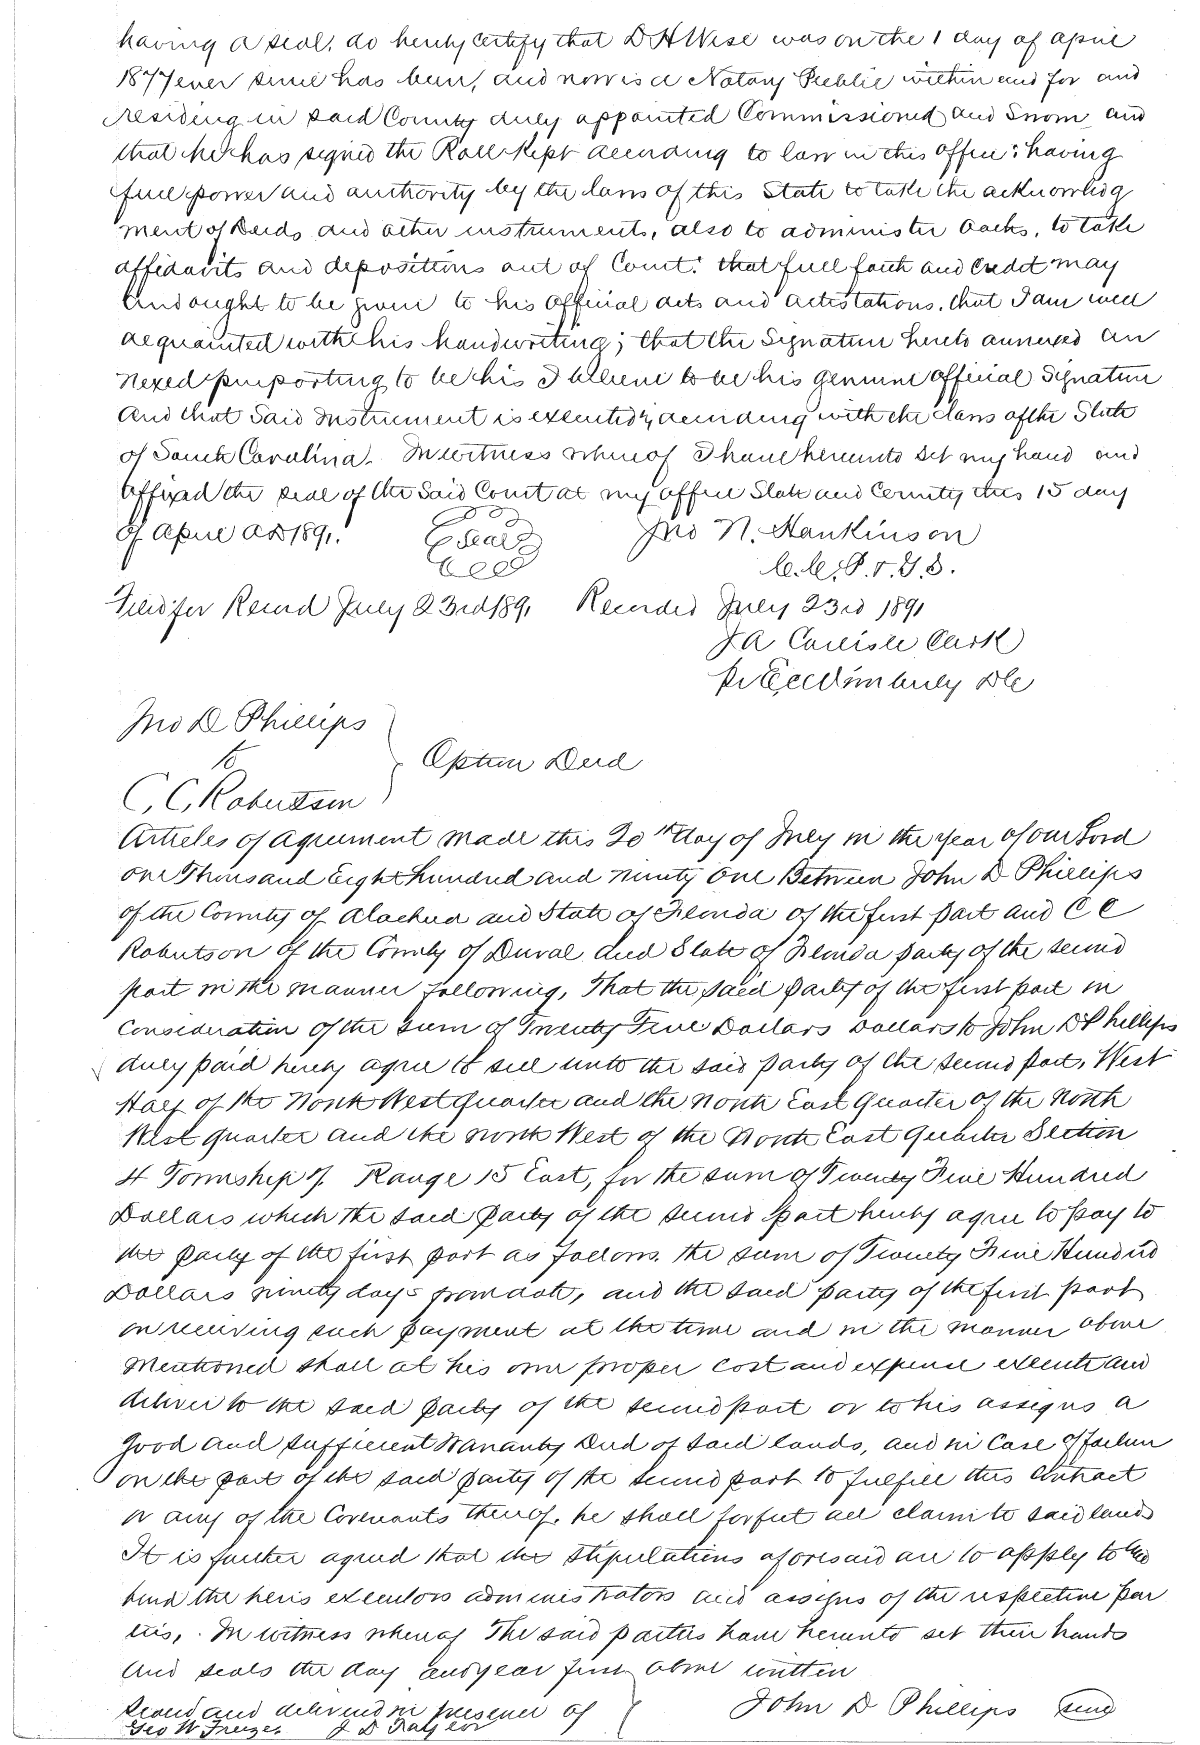 having a seal, do hereby certify that D H Wise was on the 1 day of April
1877 ever since has been, and now is a Notary Public within and for and
residing in said County duly appointed Commissioned and Sworn and
that he has signed the Roll Kept according to law in this office; having
full power and authority by the laws of this State to take the acknowledg
ment of Deeds and other instruments, also to administer oaths, to take
affidavits and depositions out of Court: that full faith and credit may
And ought to be given to his official acts and attestations, that I am well
acquainted with his handwriting; that the Signature hereto annexed an
nexed purporting to be his I believe to be his genuine official Signature
And that Said Instrument is executed according with the laws of the State
of South Carolina. In witness whereof I have hereunto set my hand and
affixed the seal of the Said Court at my office State and County this 15 day
of April AD 1891.
Seal
Jno N. Hankinson
C.C.P. & G.S.
Filed for Record July 23rd 1891 Recorded July 23rd 1891
J A Carlisle Clerk
Pr Wimberly DC
Jno D Phillips
to
Option Deed
C, C, Robertson
Articles of Agreement made this 20th day of July in the year of our Lord
one Thousand Eight hundred and ninety one Between John D Phillips
of the County of Alachua and State of Florida of the first part and C C
Robertson of the County of Duval and State of Florida party of the second
part in the manner following, That the said party of the first part in
Consideration of the sum of Twenty Five Dollars Dollars to John D Phillips
duly paid hereby agree to sell unto the said party of the second part, West
Half of the North West quarter and the north East quarter of the North
West quarter and the north West of the North East quarter Section
4 Township 7 Range 15 East, for the sum of Twenty Five Hundred
Dollars which the said party of the second part hereby agree to pay to
the party of the first part as follows. the sum of Twenty Five Hundred
Dollars ninety days from date, and the said party of the first part
on receiving such payment at the time and in the manner above
Mentioned shall at his own proper cost and expense execute and
deliver to the said party of the second part or to his assigns a
good and sufficient Warranty Deed of said lands, and in Case of failure
on the part of the said party of the second part to fulfill this Contract
or any of the Covenants thereof, he shall forfeit all claim to said lands
It is further agreed that the stipulations aforesaid are to apply to and
bind the heirs executors administrators and assigns of the respective par
ties, In witness whereof The said parties have hereunto set their hands
And seals the day and year first above written
Sealed and delivered in presence of
John D Phillips Seal
Geo W J D